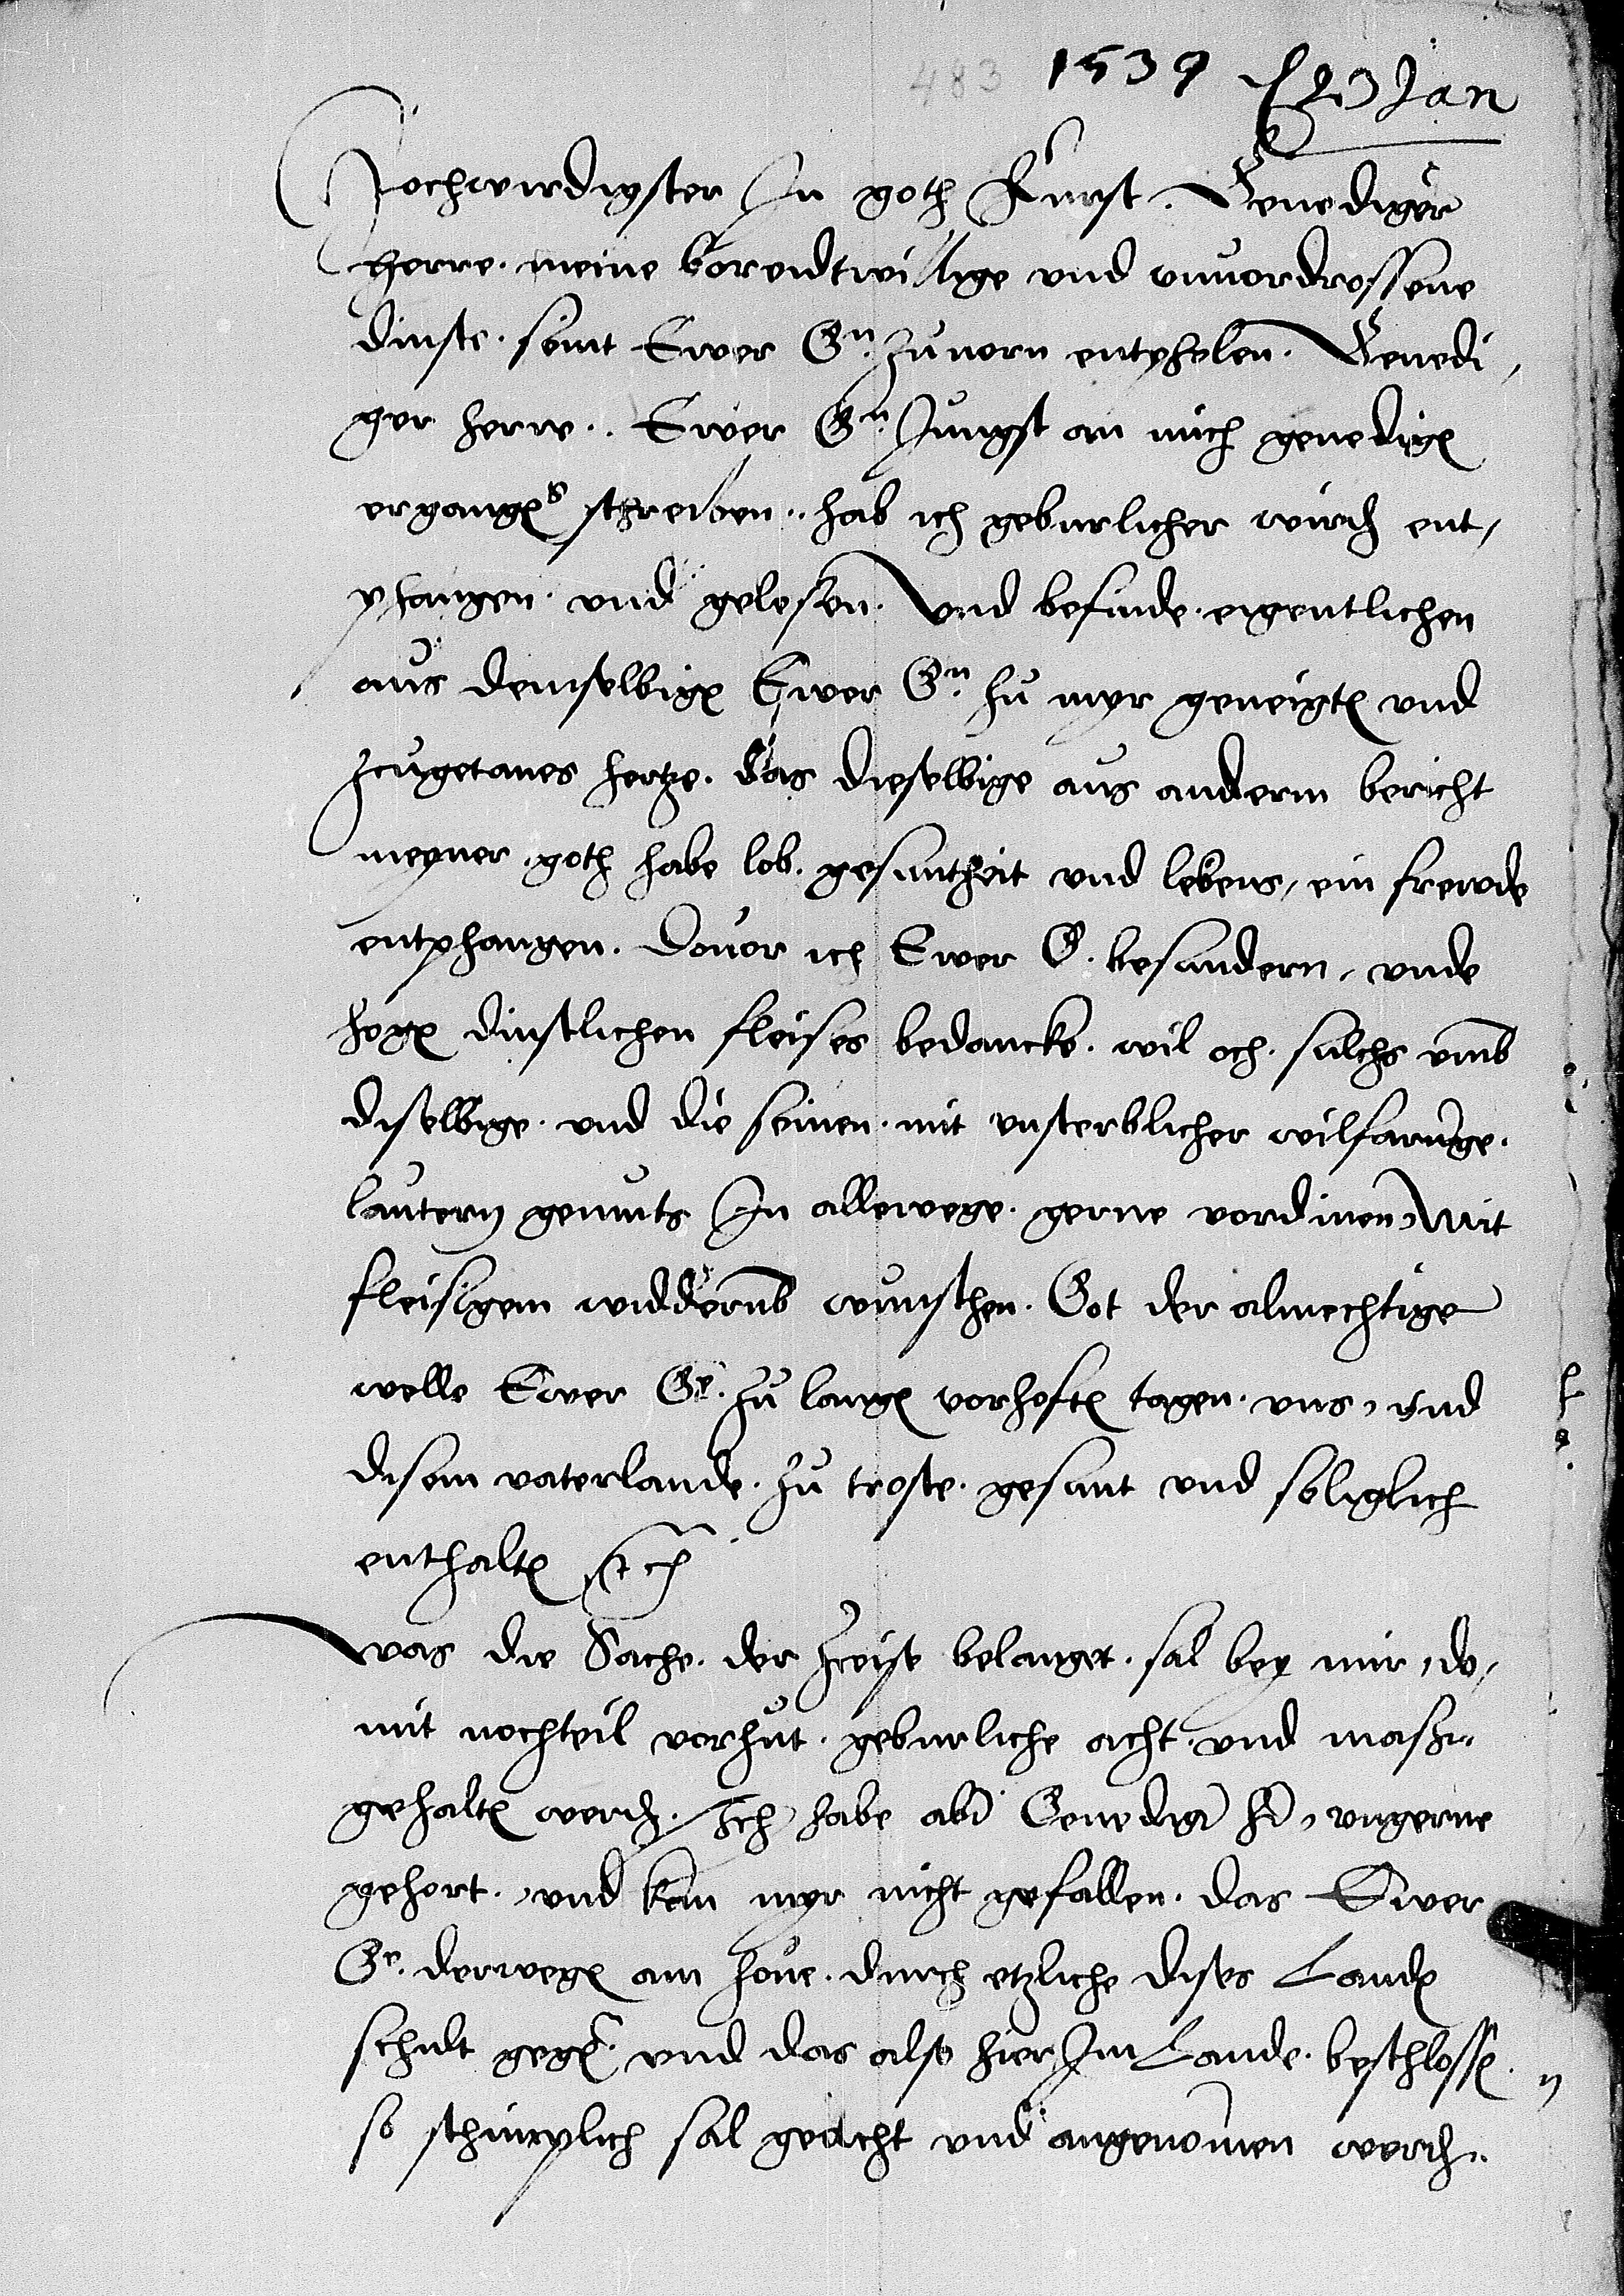 483 1539 Jan
Hochwirdigster In goth Furst. Genediger
Herre. meine boreidtwillige vnd vnuordrossene
dinste. seint Ewer Gn. zuuorn entphelen. Genedi,
ger herre.. Ewer Gn. Jungst an mich genedigs
ergangens schreiben.. hab ich geburlicher wirde ent,
phangen. vnd gelesen. Vnd befinde. eigentlichen
aus demselbigen Ewer Gn. zu myr geneigts vnd
zcugetanes hertze. das dieselbige aus anderm bericht
meyner. goth habe lob. gesuntheit vnd lebens, ein frewde
entphangen. Douor ich Ewer G. besundern, vnde
hoges dinstlichen fleises bedancke. wil och. sulchs vmb
diselbige. vnd die seinen. mit vnsterblicher wilfarunge.
lautern gemuts In allewege. gerne vordinen, Mit
fleisigem widderumb wunschen. Got der almechtige
welle Ewer Gn. zu langen vorhoften tagen. vns, vnd
disem vaterlande. zu troste. gesunt vnd seliglich
enthalten etc
Was die Sache. der Zeise belanget. sal bey mir, do,
mit nochteil vorhut. geburliche acht. vnd mass..
gehalten werden. Ich habe aber Genediger her, vngerne
gehort., vnd kan myr nicht gefallen. das Ewer
Gn. derwegen am houe. durch etzliche dises Landes
schult gegeben. vnd das also hier Im Lande. beschlossen.
so schimplich sal geacht vnd angenomen werden..